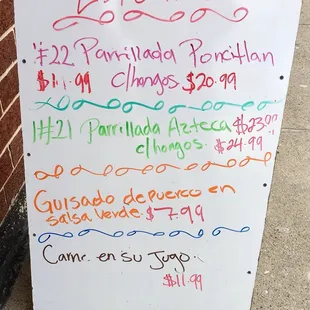 #22 Parrillada Poncitlan
$11.99 c/hongos. $20.99
#21 Parrillada Azteca $23.99
c/hongos. $24.99
Guisado de puerco en
salsa verde. $7.99
Carne en su Jugo.
$11.99